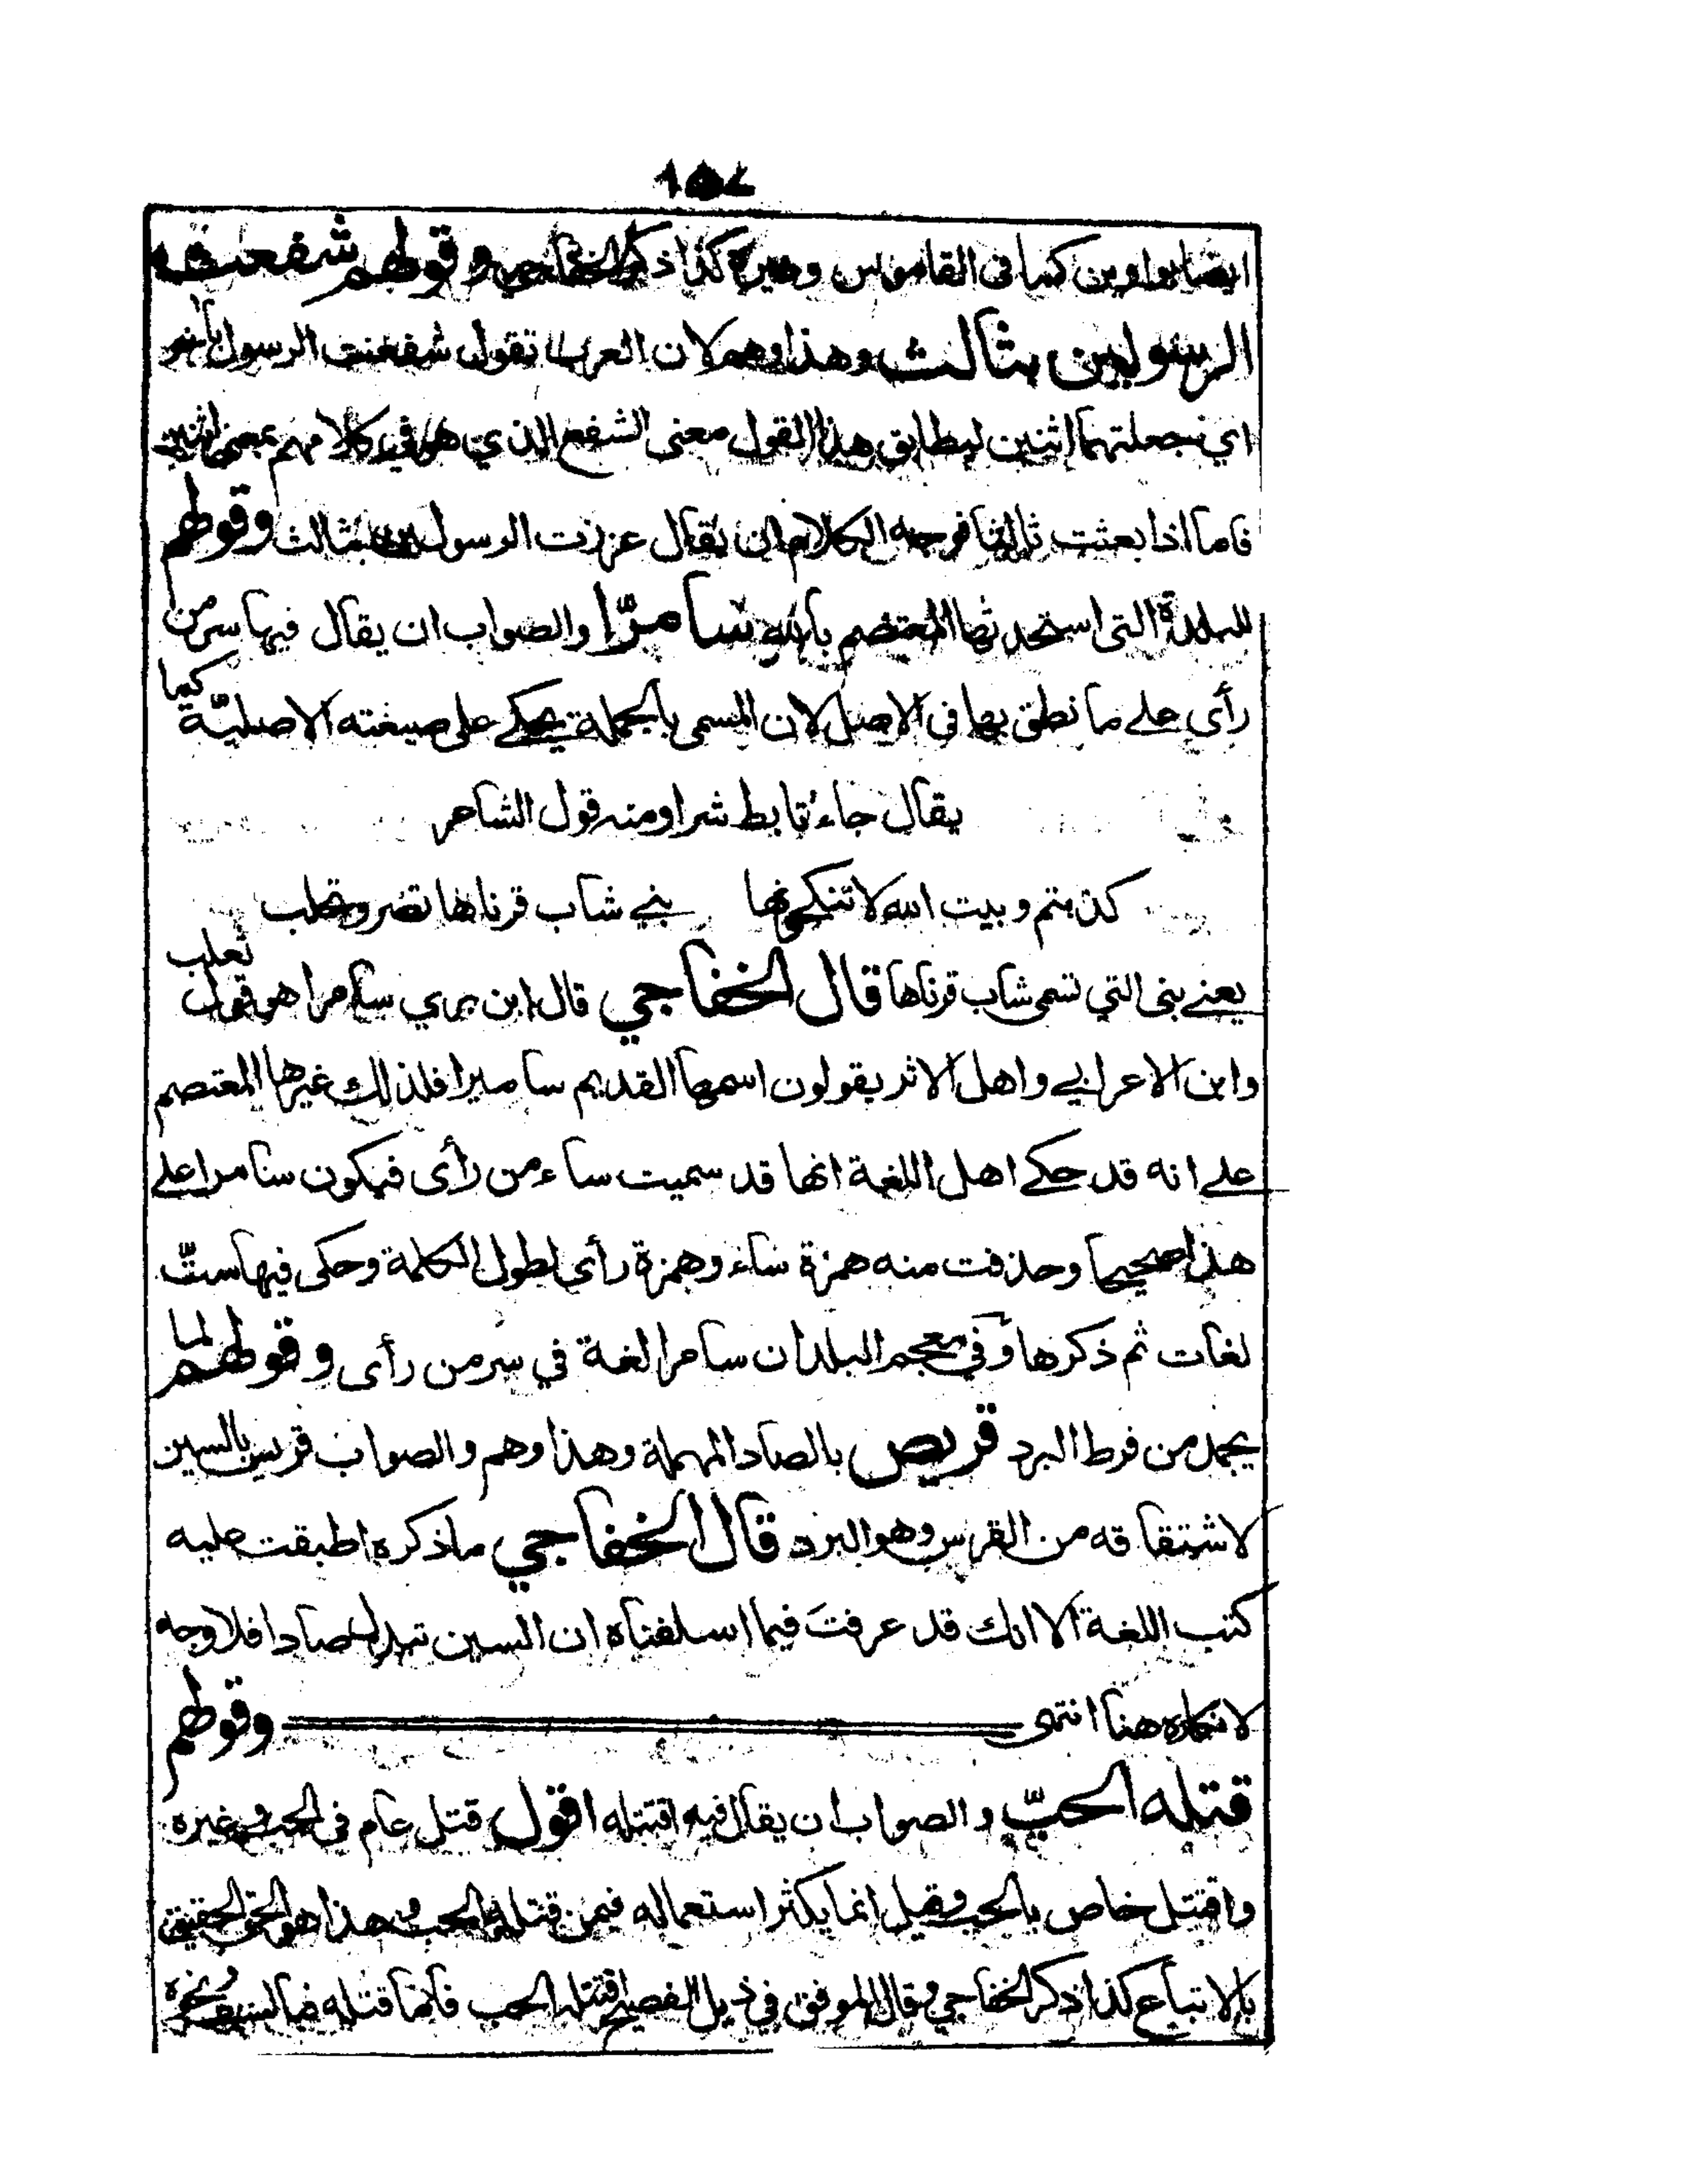 ١٥٧
ايضا بواوين كما فى القاموس وغيره كذا ذكر الخفاجي وقولهم شفعت
الرسولين بثالث وهذا وهم لان العرب تقول شفعت الرسول بآخر
اي جعلتهما اثنين ليطابق هذا القول معنى الشفع الذي هو في كلامهم بمعنى اثنين
فاما اذا بعثت ثالثا فوجه الكلام ان يقال عززت الرسولين بثالث وقولهم
للبلدة التى استحدثها المعتصم بالله سامرّا والصواب ان يقال فيها سر من
رأى على ما نطق بها فى الاصل لان المسمى بالجملة يحكى على صيغته الاصليّة كما
يقال جاء تابط شرا ومنه قول الشاعر
كذبتم وبيت الله لا تنكحونها بنى شاب قرناها تصر وتحلب
يعنى بنى التي تسمى شاب قرناها قال الخفاجي قال ابن بري سامرا هو قول ثعلب
وابن الاعرابي واهل الاثر يقولون اسمها القديم ساميرا فلذلك غيرها المعتصم
على انه قد حكى اهل اللغة انها قد سميت ساء من رأى فيكون سامرا على
هذا صحيحا وحذفت منه همزة ساء وهمزة رأى لطول الكلمة وحكى فيها ستّ
لغات ثم ذكرها وفي معجم البلدان سامرا لغة في سر من رأى وقولهم لما
يجمد من فرط البرد قريص بالصاد المهملة وهذا وهم والصواب قريس بالسين
لاشتقاقه من القرس وهو البرد قال الخفاجي ما ذكره اطبقت عليه
كتب اللغة الا انك قد عرفت فيما اسلفناه ان السين تبدل صادا فلا وجه
لانكاره هنا انتهى وقولهم
قتله الحبّ والصواب ان يقال فيه اقتتله اقول قتل عام فى الحب وغيره
واقتتل خاص بالحب وقيل انما يكثر استعماله فيمن قتله الحب وهذا هو الحق الحقيق
بالاتباع كذا ذكر الخفاجي وقال الموفق في ذيل الفصيح اقتتله الحب فاما قتله فبالسيف ونحوه